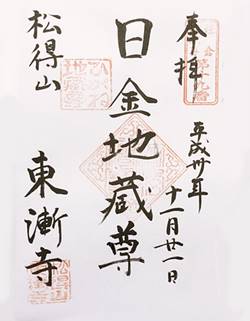 奉拝
平成卅年
十一月廿一日
日金地蔵尊
松得山
東漸寺